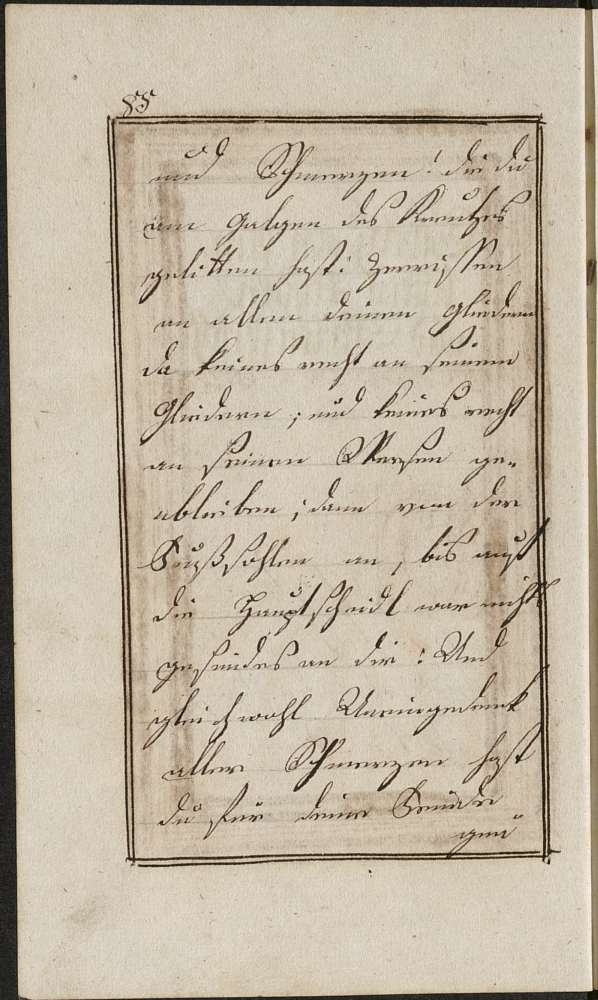 88
und Schmerzen! die du
am Galgen des Kreutzes
gelitten hast: zerrissen
an allen deinen Gliedern
da keines recht an seinem
Gliedern; und keines recht
an seinen ge-
ableiben; dann von der
Fußsohlen an, bis auf
die Hauptscheidl war nichts
gesundes an dir: Und
gleichwohl Uneingedenk
aller Schmerzen hast
du für deine Feinde